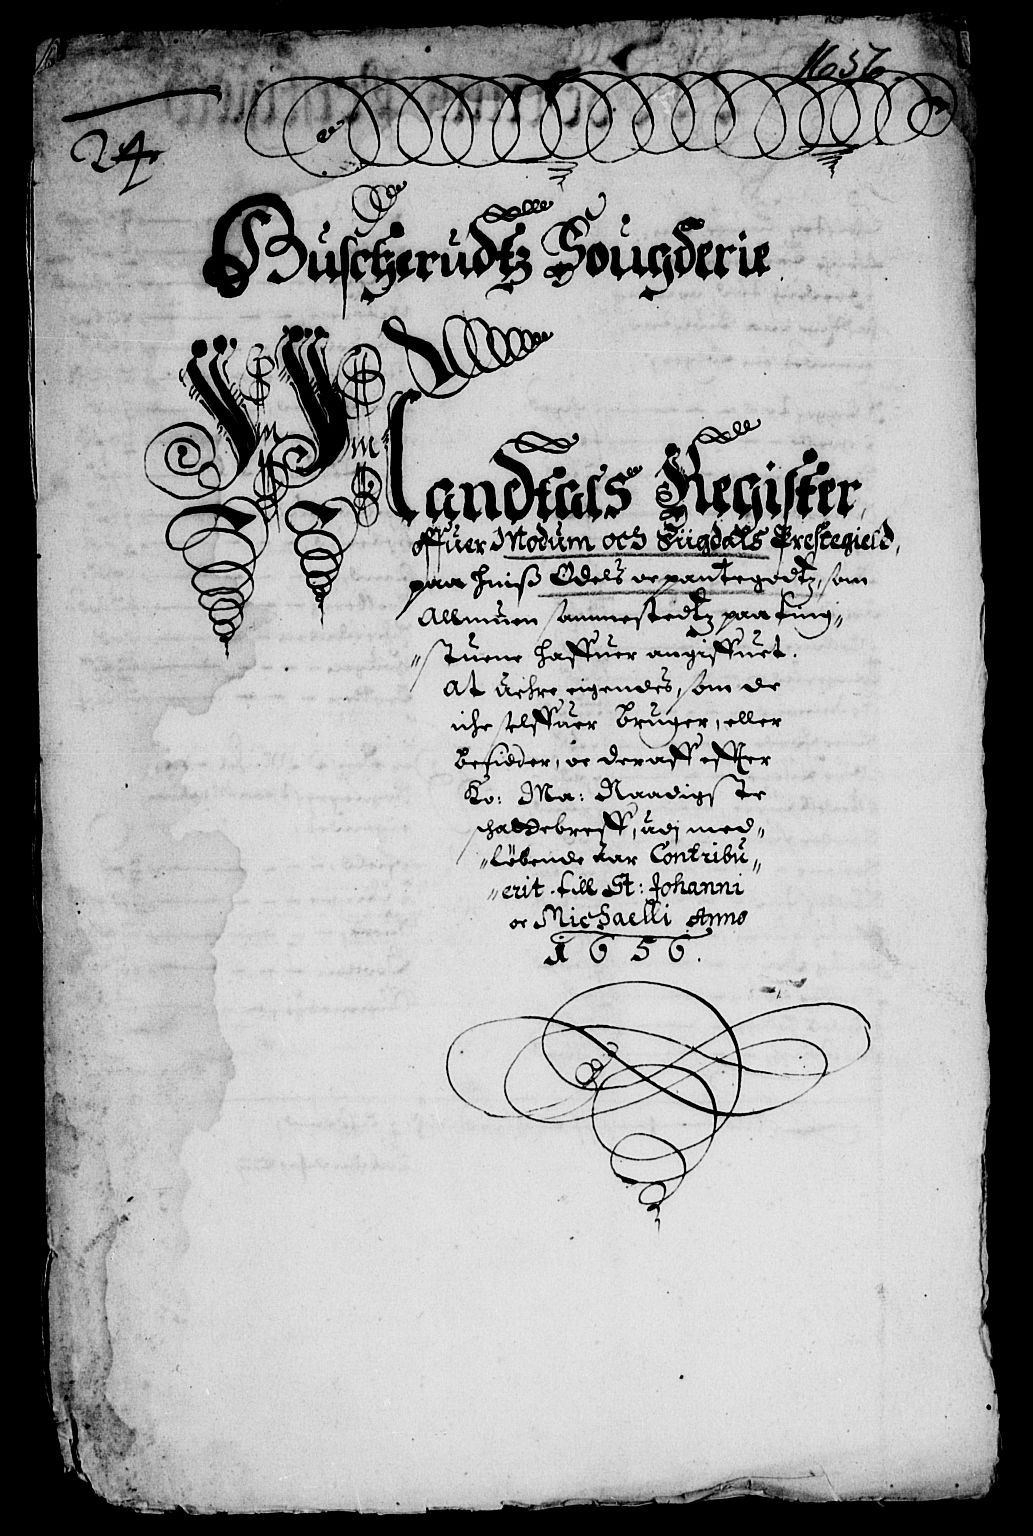 1656.
24.
Buscherudtz Fougderie.
Mandtals Register,
offuer Modum och Sigdals Prestegield,
paa huiß Odels oc pantegodtz, som
Allmuen sammestedtz paa ting-
stuene haffuer angiffuet.
At uehre eigendes, som de
iche selffuer bruger, eller
besidder, oc deraff effter
Ko: Ma: Naadigste
schattebreff, udj med-
løbende aar Contribu-
erit till St: Johanni
oc Michaelli Anno
1656.